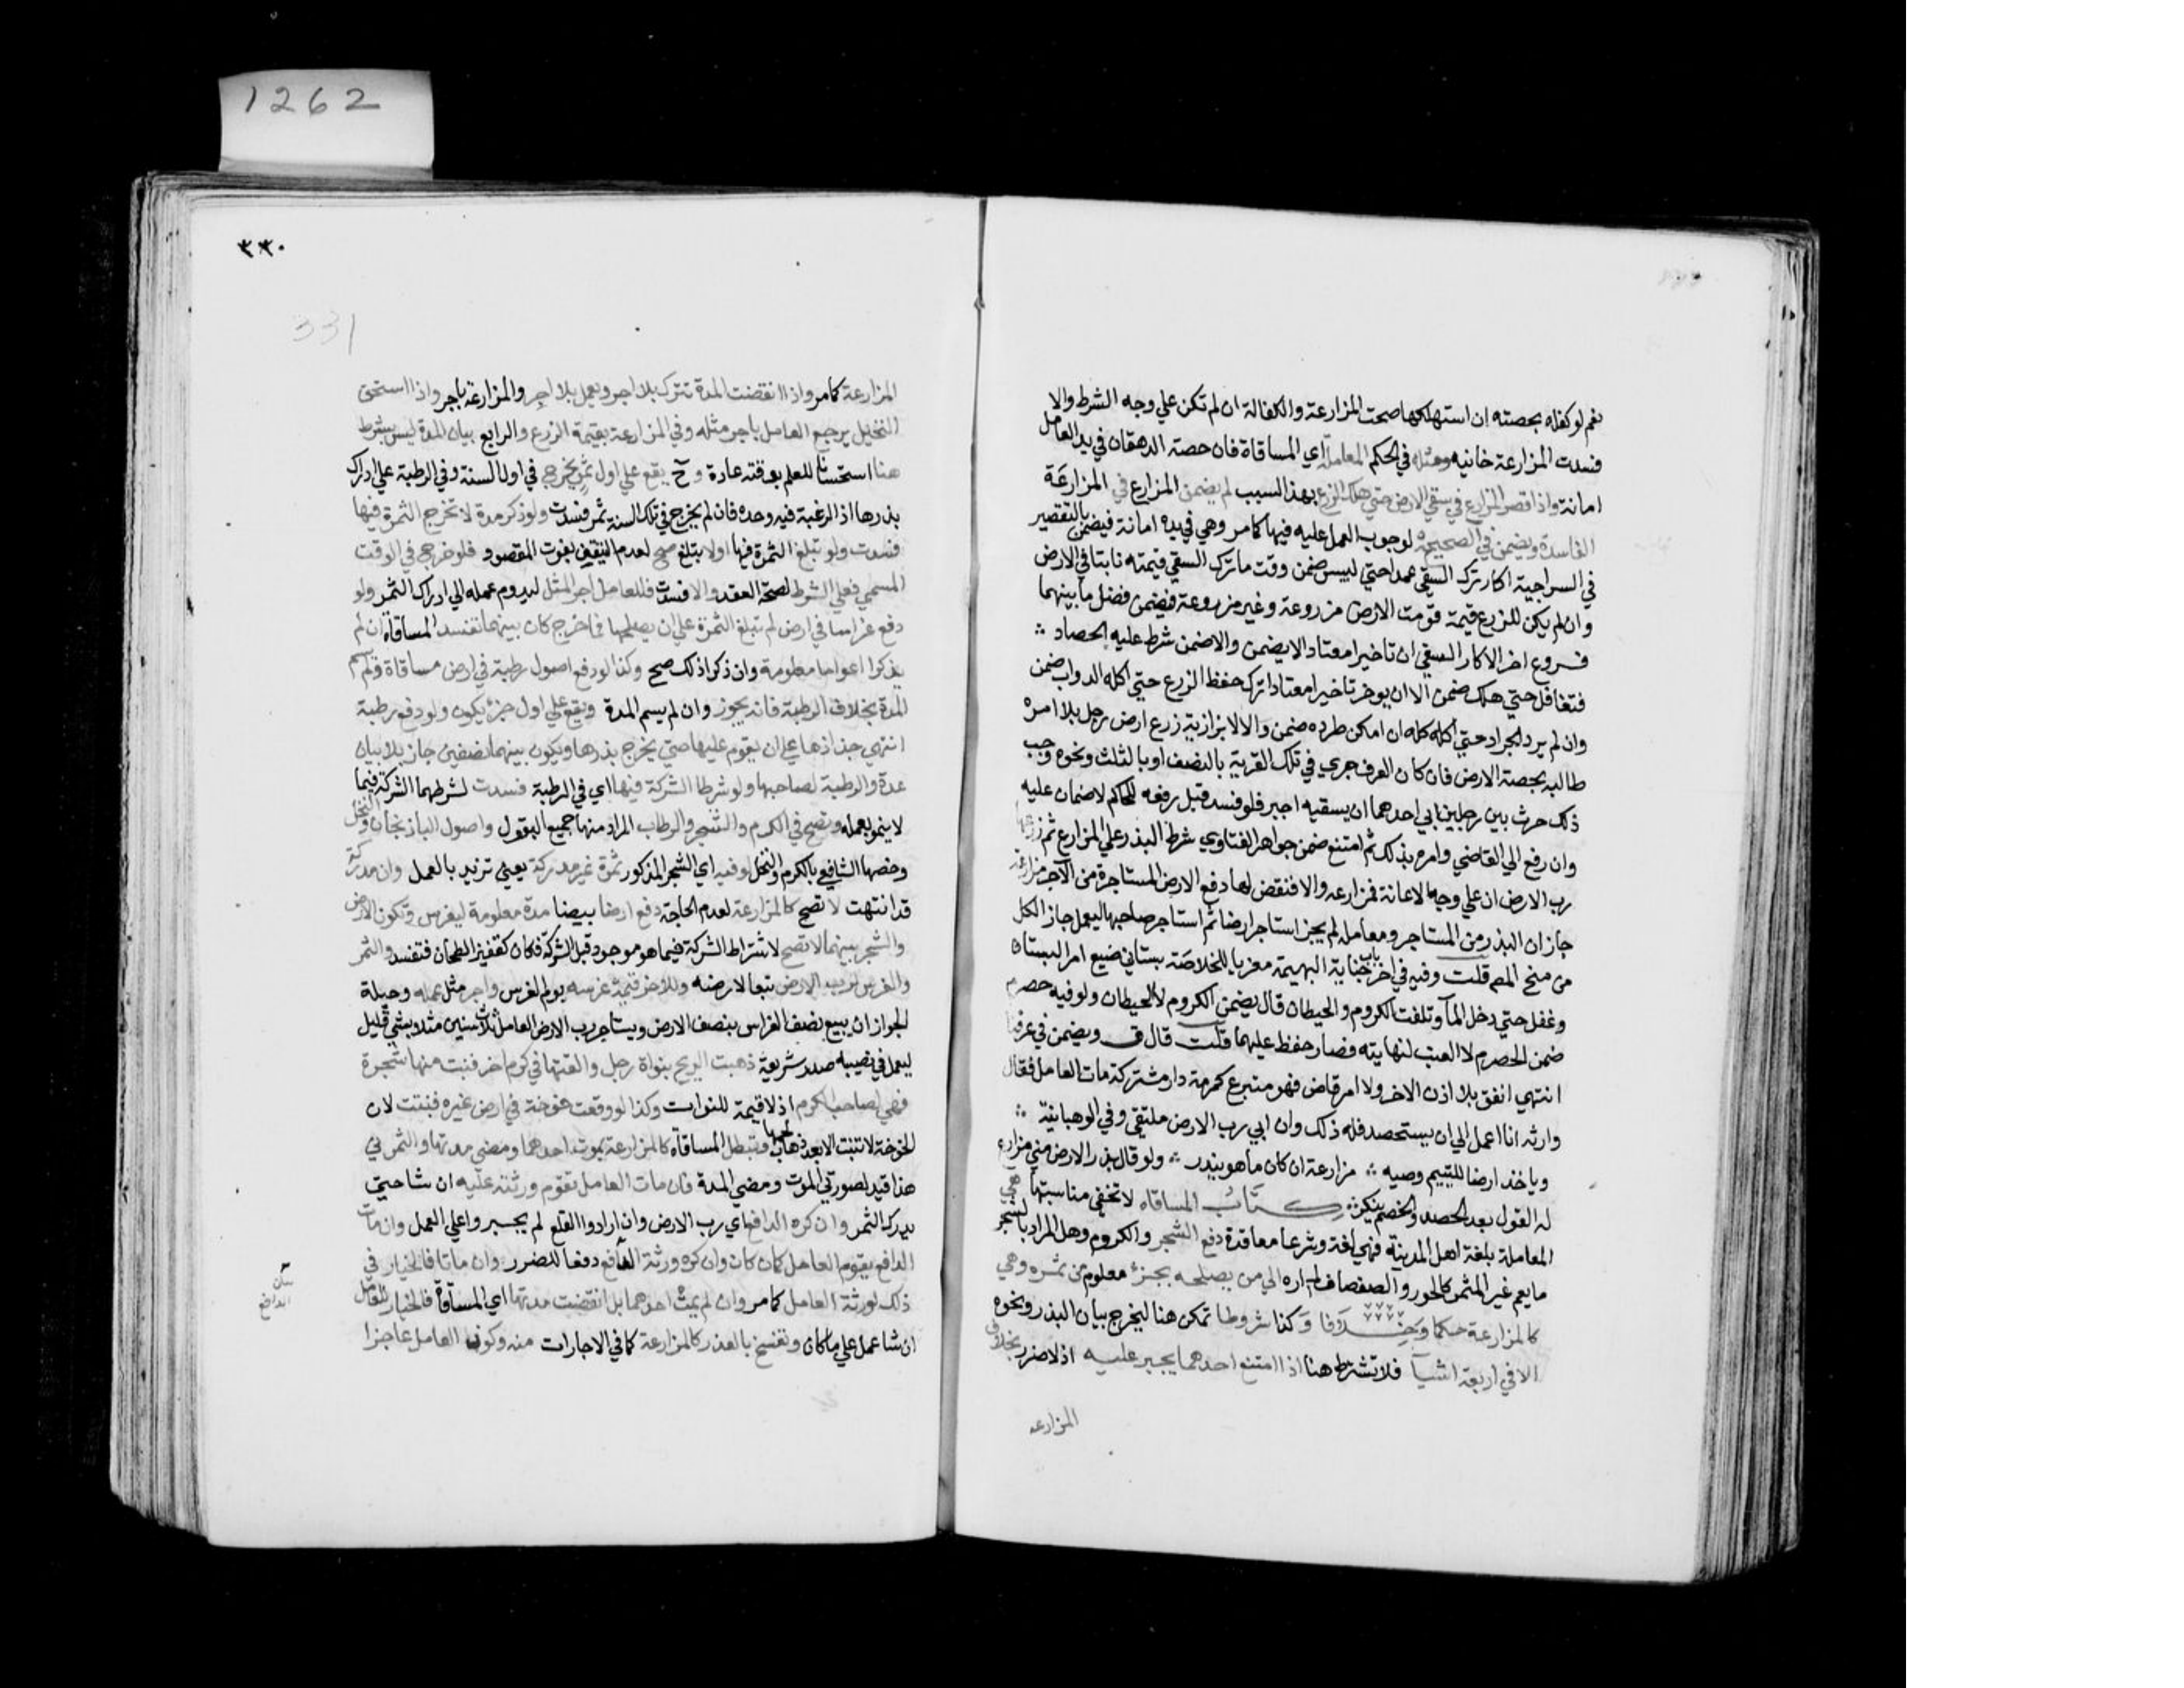 نعم لو كفله بحصته ان استهلكها صحت المزارعة والكفالة ان لم تكن علي وجه الشرط والا
فسدت المزارعة خانيه ومثله في الحكم المعاملة اي المساقاة فان حصة الدهقان في يد العامل
امانة واذا قصر المزارع في سقي الارض حتي هلك الزرع بهذا السبب لم يضمن المزارع في المزارعة
الفاسدة ويضمن في الصحيحة لوجوب العمل عليه فيها كما مر وهي في يده امانة فيضمن بالتقصير
في السراجية اكار ترك السقي عمدا حتي يبس ضمن وقت ما ترك السقي قيمته نابتا في الارض
وان لم يكن للزرع قيمة قومت الارض مزروعة وغير مزروعة فيضمن فضل ما بينهما
فروع اخر الاكار السقي ان تاخيرا معتادا لا يضمن والا ضمن شرط عليه الحصاد ∴
فتغافل حتي هلك ضمن الا ان يوخر تاخيرا معتادا ترك حفظ الزرع حتي اكله الدواب ضمن
وان لم يرد الجراد حتي اكله كله ان امكن طرده ضمن والا لا بزازية زرع ارض رجل بلا امره
طالبه بحصة الارض فان كان العرف جري في تلك القرية بالنصف او بالثلث ونحوه وجب
ذلك حرث بين رجلين ابي احدهما ان يسقيه اجبر فلو فسد قبل رفعه للحاكم لا ضمان عليه
وان رفع الي القاضي وامره بذلك ثم امتنع ضمن جواهر الفتاوي شرط البذر علي المزارع ثم زرعها
رب الارض ان علي وجه الاعانة فمزارعه والا فنقض لها دفع الارض المستاجرة من الآجر مزارعة
جاز ان البذر من المستاجر ومعاملة لم يجز استاجر ارضا ثم استاجر صاحبها ليعمل جاز الكل
من منح المصـ قلت وفيه في اخر باب جناية البهيمة معزيا للخلاصة بستاني ضيع امر البستان
وغفل حتي دخل المآ وتلفت الكروم والحيطان قال يضمن الكروم لا الحيطان ولو فيه حصرم
ضمن الحصرم لا العنب لنهايته فصار حفظ عليهما قلت قال ف ويضمن في عرفنا
انتهي انفق بلا اذن الاخر ولا امر قاض فهو متبرع كمرمة دار مشتركة مات العامل فقال
وارثه انا اعمل الي ان يستحصد فله ذلك وان ابي رب الارض ملتقي وفي الوهبانية ∴
وياخذ ارضا لليتيم وصيه ∴ مزارعة ان كان ما هو يبذر ∴ ولو قال بذر الارض مني مزارع
له القول بعد الحصد والخصم ينكر ∴ كتاب المساقاه لا تخفي مناسبتها هي
المعاملة بلغة اهل المدينة فهي لغة وشرعا معاقدة دفع الشجر والكروم وهل المراد بالشجر
ما يعم غير المثمر كالحور والصفصاف لم اره الي من يصلحه بجزء معلوم من ثمره وهي
كالمزارعة حكما وخلافا وكذا شروطا تمكن هنا ليخرج بيان البذر ونحوه
الا في اربعة اشيآ فلا تشترط هنا اذا امتنع احدهما يجبر عليه اذ لا ضرر بخلاف
المزارعه
٣٣٠
331
1262
المزارعة كما مر واذا انقضت المدة تترك بلا اجر ويعمل بلا اجر والمزارعة باجر واذا استحق
النخيل يرجع العامل باجر مثله وفي المزارعة بقيمة الزرع والرابع بيان المدة ليس بشرط
هنا استحسانا للعلم بوقته عادة وح يقع علي اول ثمر يخرج في اول السنة وفي الرطبة علي ادراك
بذرها اذ الرغبة فيه وحده فان لم يخرج في تلك السنة ثمر فسدت ولو ذكر مدة لا تخرج الثمرة فيها
فسدت ولو تبلغ الثمرة فيها اولا تبلغ صح لعدم التيقن بفوت المقصود فلو خرج في الوقت
المسمي فعلي الشرط لصحة العقد والا فسدت فللعامل اجر المثل ليدوم عمله الي ادراك الثمر ولو
دفع غراسا في ارض لم تبلغ الثمرة علي ان يصلحها فما خرج كان بينهما تفسد المساقاة ان لم
يذكرا اعواما معلومة وان ذكرا ذلك صح وكذا لو دفع اصول رطبة في ارض مساقاة ولم يسم
المدة بخلاف الرطبة فانه يجوز وان لم يسم المدة ويقع علي اول جز يكون ولو دفع رطبة
انتهي جذاذها علي ان يقوم عليها حتي يخرج بذرها ويكون بينهما نصفين جاز بلا بيان
مدة والرطبة لصاحبها ولو شرطا الشركة فيها اي في الرطبة فسدت لشرطهما الشركة فيما
لا ينمو بعمله وتصح في الكرم والشجر والرطاب المراد منها جميع البقول واصول الباذنجان والنخل
وخصها الشافعي بالكرم والنخل لو فيه اي الشجر المذكور ثمرة غير مدركة يعني تزيد بالعمل وان مدركة
قد انتهت لا تصح كالمزارعة لعدم الحاجة دفع ارضا بيضا مدة معلومة ليغرس وتكون الارض
والشجر بينهما لا تصح لاشتراط الشركة فيما هو موجود قبل الشركة فكان كقفيز الطحان فتفسد والثمر
والغرس لرب الارض تبعا لارضه وللاخر قيمة غرسه يوم الغرس واجر مثل عمله وحيلة
الجواز ان يبيع نصف الغراس بنصف الارض ويستاجر رب الارض العامل ثلاث سنين مثلا بشي قليل
ليعمل في نصيبه صدر شريعة ذهبت الريح بنواة رجل والقتها في كرم اخر فنبت منها شجرة
فهي لصاحب الكرم اذ لا قيمة للنواة وكذا لو وقعت خوخة في ارض غيره فنبتت لان
الخوخة لا تنبت الا بعد ذهاب لحمها وتبطل المساقاة كالمزارعة بموت احدهما ومضي مدتها والثمر ني
هذا قيد لصورتي الموت ومضي المدة فان مات العامل تقوم ورثته عليه ان شا حتي
يدرك الثمر وان كره الدافع اي رب الارض وان ارادوا القلع لم يجبروا علي العمل وان مات
الدافع يقوم العامل كما كان وان كره ورثة الدافع دفعا للضرر وان ماتا فالخيار في
ذلك لورثة العامل كما مر وان لم يمت احدهما بل انقضت مدتها اي المساقاة فالخيار للعامل
ان شا عمل علي ما كان وتفسخ بالعذر كالمزارعة كما في الاجارات منه وكون العامل عاجزا
الدافع